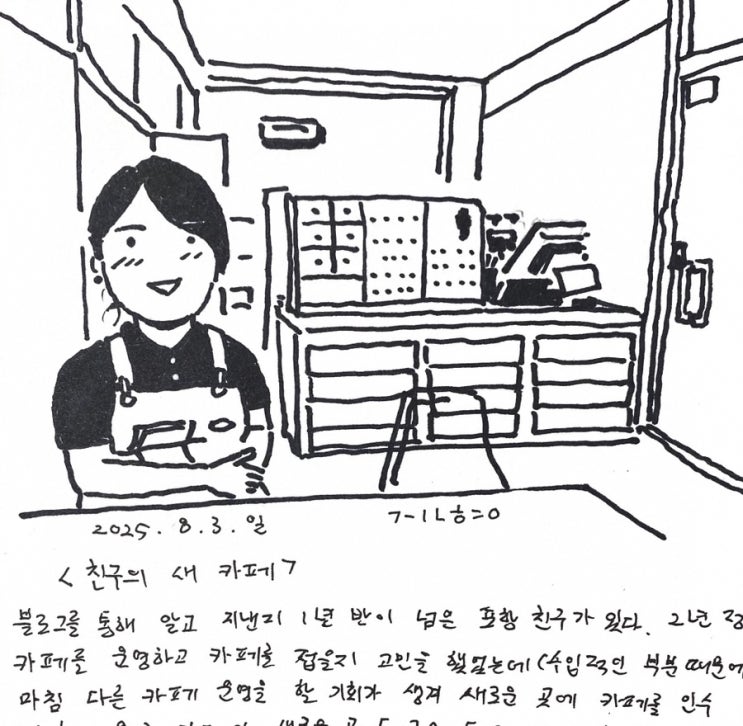 2025. 8. 3. 일
<친구의 새 카페>
블로그를 통해 알고 지낸지 1년 반이 넘은 포항 친구가 있다. 2년
카페를 운영하고 카페를 접을지 고민을 했었는데(수입적인 부분 때문에
마침 다른 카페 운영을 할 기회가 생겨 새로운 곳에 카페를 인수